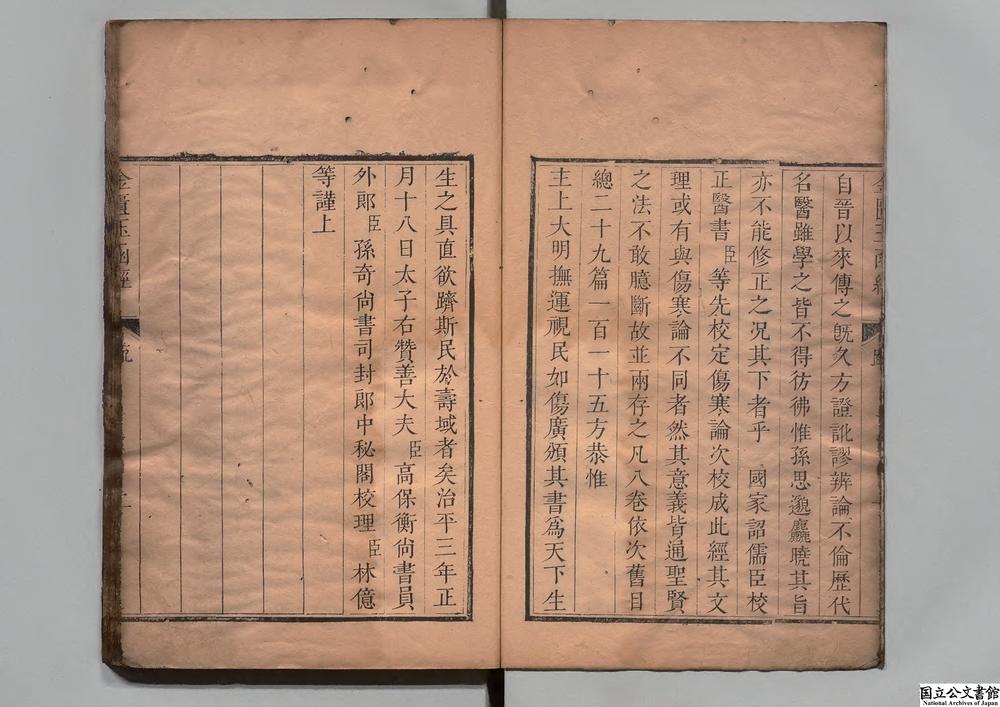 自晉以來傳之旣久方證訛謬辨論不倫歷代
名醫雖學之皆不得彷彿惟孫思邈麤曉其旨
亦不能修正之況其下者乎　國家詔儒臣校
正醫書臣等先校定傷寒論次校成此經其文
理或有與傷寒論不同者然其意義皆通聖賢
之法不敢臆斷故並兩存之凡八卷依次舊目
總二十九篇一百一十五方恭惟
主上大明撫運視民如傷廣頒其書爲天下生
生之具直欲躋斯民於壽域者矣治平三年正
月十八日太子右贊善大夫臣高保衡尙書員
外郞臣孫奇尙書司封郞中秘閣校理臣林億
等謹上
金匱玉函經
国立公文書館
National Archives of Japan